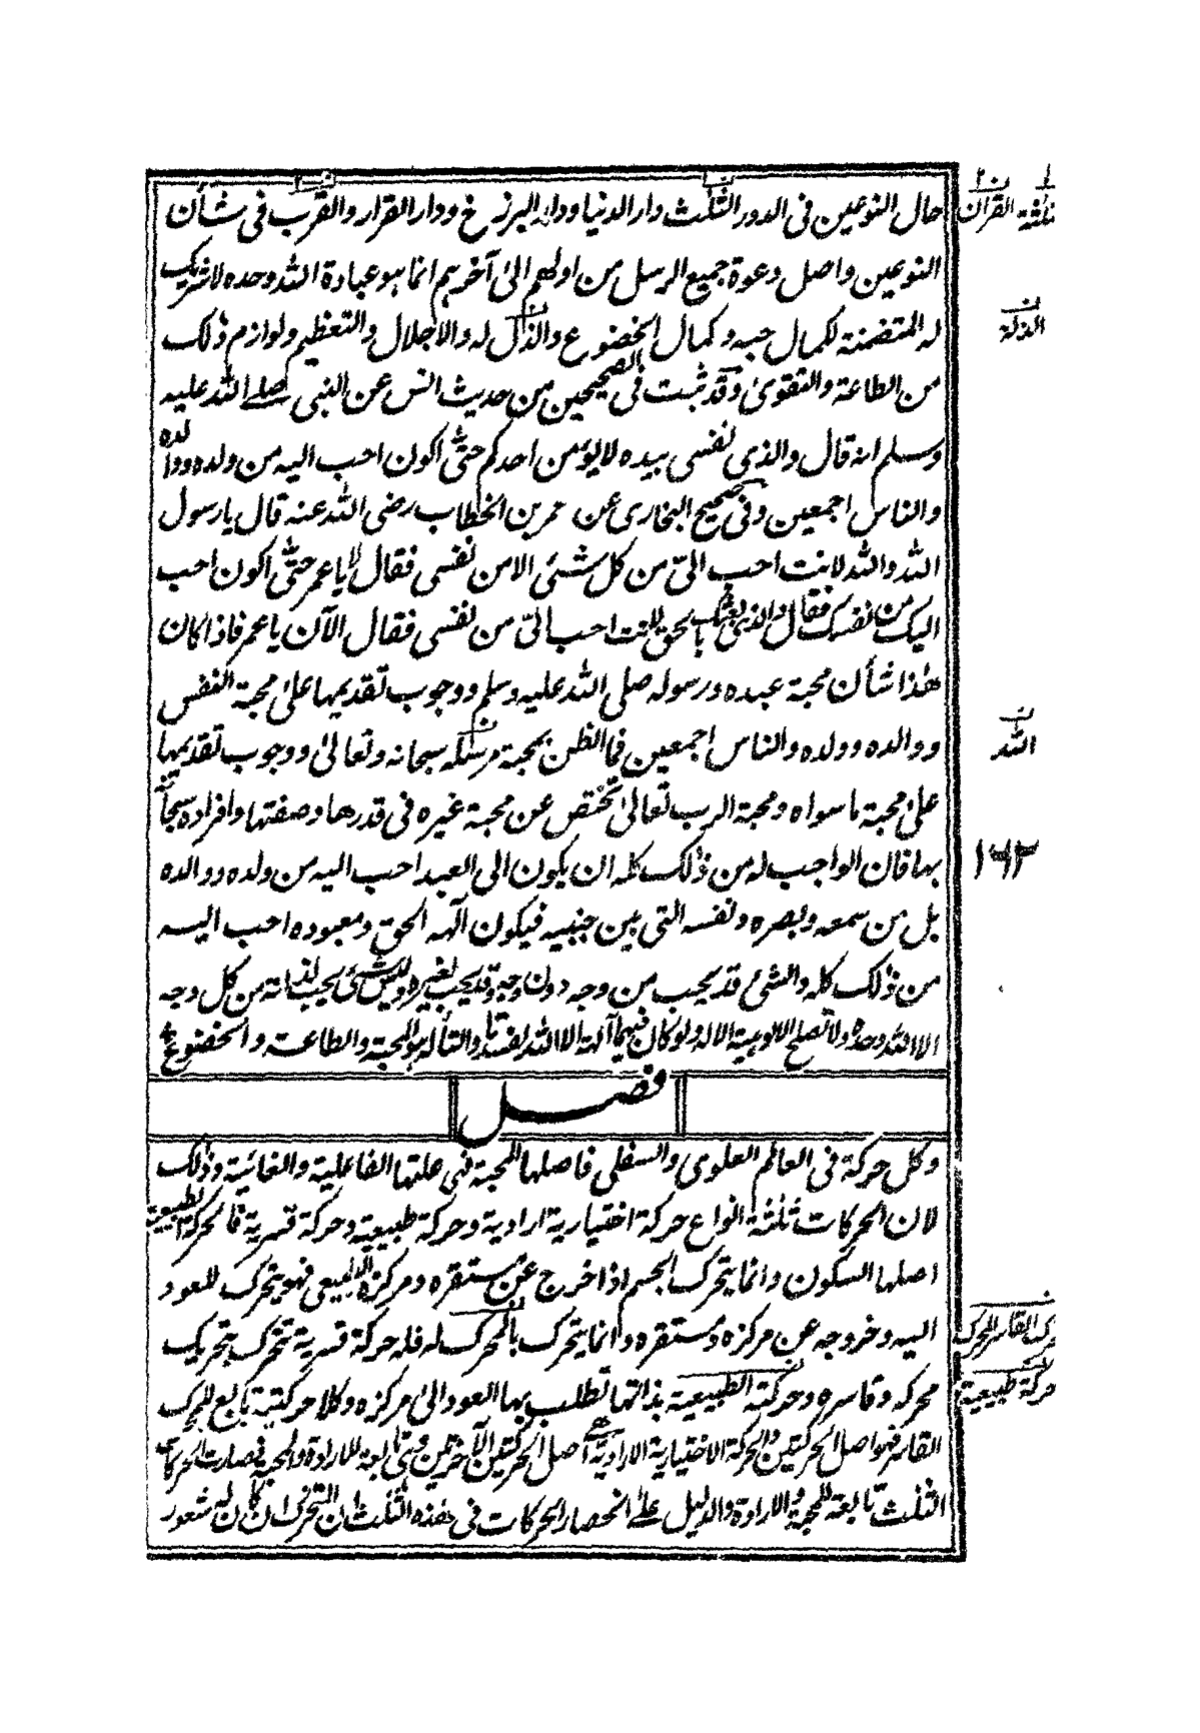 حال النوعين فى الدور الثلث دار الدنيا ودار البرزخ ودار القرار والقرب فى شأن
النوعين واصل دعوة جميع الرسل من اولهم الىٰ آخرهم انما هو عبادة الله وحده لاشريك
له المتضمنة لكمال حبه وكمال الخضوع والذل له والاجلال والتعظيم ولوازم ذلك
من الطاعة والتقوىٰ وقد ثبت فى الصحيحين من حديث انس عن النبى صلے الله عليه
وسلم انه قال والذى نفسى بيده لايؤمن احدكم حتىٰ اكون احب اليه من ولده ووالده
والناس اجمعين وفى صحيح البخارى عن عمر بن الخطاب رضى الله عنه قال يا رسول
الله والله لانت احب الىّ من كل شئى الا من نفسى فقال لا يا عمر حتىٰ اكون احب
اليك من نفسك فقال والذى بعثك بالحق لانت احب الىّ من نفسى فقال الآن يا عمر فاذا كان
هٰذا شأن محبة عبده ورسوله صلى الله عليه وسلم ووجوب تقديمها علىٰ محبة النفس
ووالده وولده والناس اجمعين فما الظن بمحبة مرسله سبحانه وتعالىٰ ووجوب تقديمها
علىٰ محبة ما سواه ومحبة الرب تعالىٰ تختص عن محبة غيره فى قدرها وصفتها وافراده سبحانه
بها فان الواجب له من ذٰلك كله ان يكون الى العبد احب اليه من ولده ووالده
بل من سمعه وبصره ونفسه التى بين جنبيه فيكون الٰهه الحق ومعبوده احب اليه
من ذٰلك كله والشئ قد يحب من وجه دون وجه وقد يحب لغيره وليس شئى يحب لذاته من كل وجه
الا الله وحده ولا تصلح الالوهية الا له ولو كان فيهما آلهة الا الله لفسدتا والتأله هو المحبة والطاعة والخضوع
فصل
وكل حركة فى العالم العلوى والسفلى فاصلها المحبة فهى علتها الفاعلية والغائية وذٰلك
لان الحركات ثلٰثة انواع حركة اختيارية ارادية وحركة طبيعية وحركة قسرية فالحركة الطبيعية
اصلها السكون وانما يتحرك الجسم اذا خرج عن مستقره ومركزه الطبيعى فهو يتحرك للعود
اليه وخروجه عن مركزه ومستقره وانما يتحرك بالمحرك له فله حركة قسرية تتحرك بتحريك
محركه وقاسره وحركته الطبيعية بذاتها تطلب بها العود الىٰ مركزه وكلا حركتيه تابع للمحرك
القاسر فهو اصل الحركتين والحركة الاختيارية الارادية هى اصل الحركتين الآخرتين وهى تابعة للارادة والمحبة فصارت الحركات
الثلٰث تابعة للمحبة والارادة والدليل علے انحصار الحركات فى هٰذه الثلٰث ان المتحرك ان كان له شعور
ثلٰثة القرآن
الذلة
الله
١٦٢
القاسر المحرك
حركة طبيعية